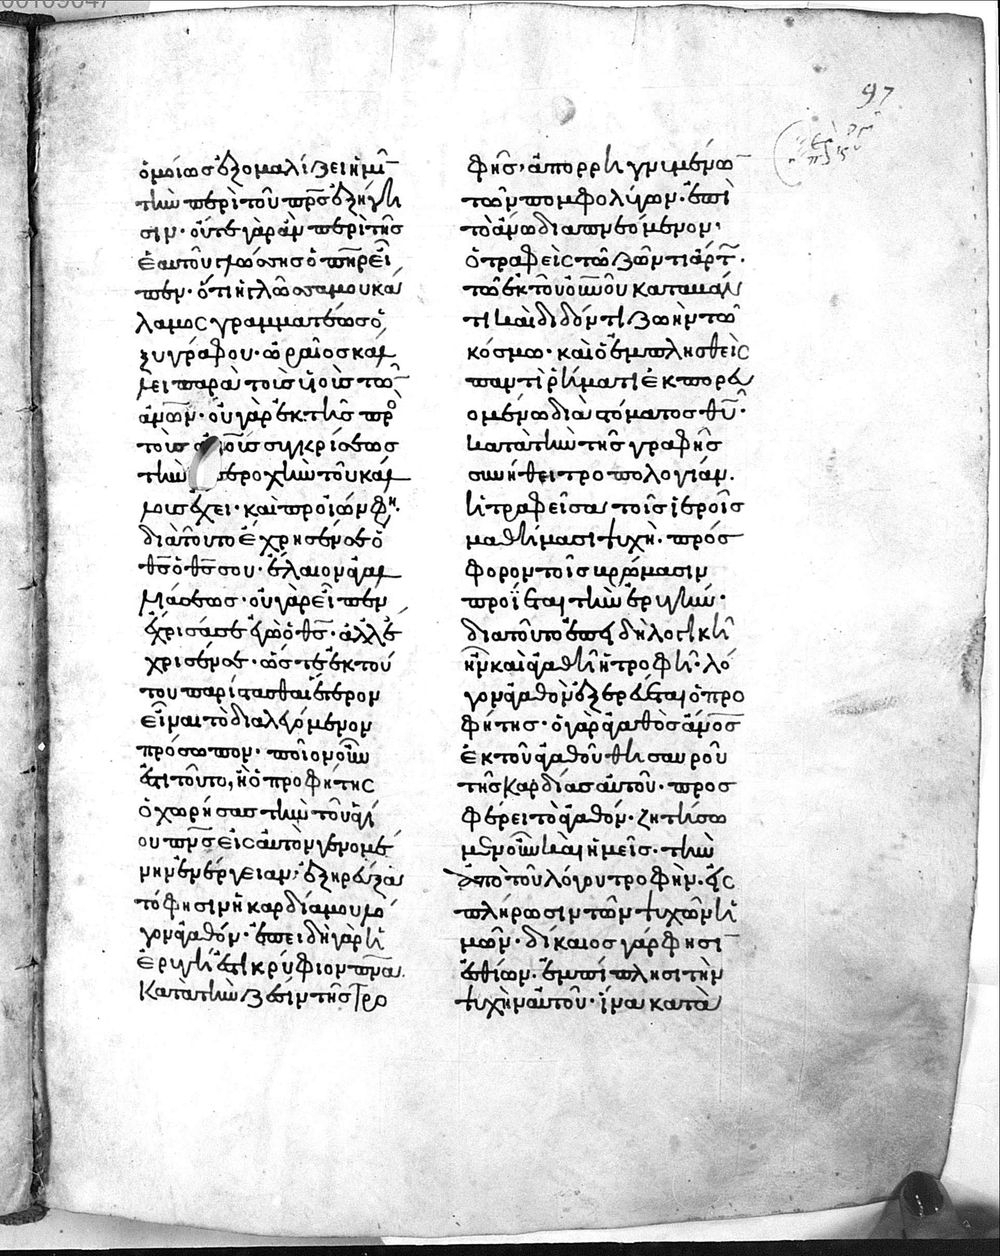 97
ὁμοίως ἐξομαλίζει ἡμῖ
τὴν περὶ τοῦ πρς ἐξήγη
σιν· οὔτε γὰρ ἂν περὶ τῆς
ἑαυτοῦ γλώσσης ὁ πηρ εἶ
πεν· ὅτι ἡ γλῶσσα μου κά
λαμος γραμματέως ὀ
ξυγράφου· ὡραῖος κάλ
λει παρὰ τοῖς υἱοῖς τῶ
ἀνων· οὐ γὰρ ἐκ τῆς πρὸ
τοὺς
τὴν περοχὴν τοῦ κάλ
λους ἔχει· καὶ προϊών φη·
διὰ τοῦτο ἔχρησέν σε ὁ
θς ὁ θς σου· ἔλαιον ἀγαλ
λιάσεως· οὐ γὰρ εἶπεν
ἔχρισά σε ἐγὼ ὁ θς· ἀλλ' ἔ
χρισέν σε· ὥστε ἐκ τού
του παρίστασθαι ἕτερον
εἶναι τὸ διαλεγόμενον
πρόσωπον· ποῖον οὖν
ἐστι τοῦτο, ἢ ὁ προφήτης
ὁ χωρήσας τὴν τοῦ ἁγί
ου πνς εἰς αὐτὸν γενομέ
νην ἐνέργειαν; ἐξηρεύξα
τό φησιν ἡ καρδία μου λό
γον ἀγαθόν· ἐπειδὴ γὰρ ἡ
ἐριγή ἐστι κρύφιον πνα
κατὰ τὴν ζέσιν τῆς τρο
φῆς· ἀπορρηγνυμένω
τῶν πομφολύγων· ἐπὶ
τὸ ἄνω διαπνεόμενον·
ὁ τραφεὶς τῶ ζῶντι ἄρτ·
τῶ ἐκ τοῦ οὐνοῦ καταβάν
τι καὶ διδόντι ζωὴν τῶ
κόσμω· καὶ ὁ ἐμπλησθεὶς
παντὶ ῥήματι ἐκπορευ
ομένω διὰ στόματος θυ·
κατὰ τὴν τῆς γραφῆς
συνήθει τροπολογίαν·
ἡ τραφεῖσα τοῖς ἱεροῖς
μαθήμασι ψυχὴ· πρόσ
φορον τοῖς βρώμασιν
προΐεται τὴν ἐριγὴν·
διὰ τοῦτο ἐπεὶ δὴ λογικὴ
ἦν καὶ ἀγαθὴ ἡ τροφὴ· λό
γον ἀγαθὸν ἐξερεύεται ὁ προ
φήτης· ὁ γὰρ ἀγαθὸς ἄνος
ἐκ τοῦ ἀγαθοῦ θησαυροῦ
τῆς καρδίας αὐτοῦ· προσ
φέρει τὸ ἀγαθόν· ζητήσω
μεν οὖν καὶ ἡμεῖς· τὴν
ἀπὸ τοῦ λόγου τροφὴν· εἰς
πλήρωσιν τῶν ψυχῶν ἡ
μῶν· δίκαιος γάρ φησὶ
ἐσθίων· ἐμπίπλησι τὴν
ψυχὴν αὐτοῦ· ἵνα κατὰ